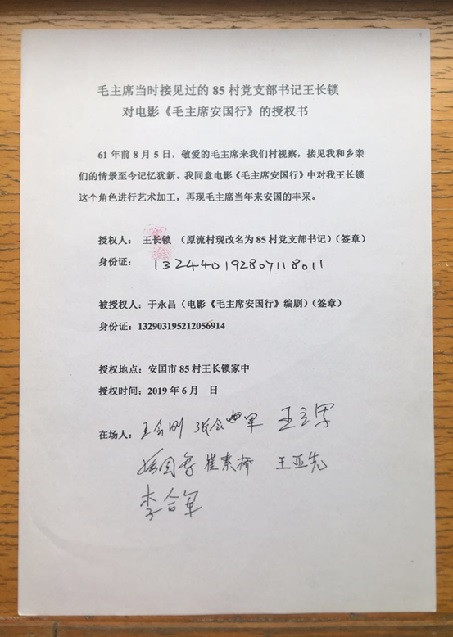 毛主席当时接见过的 85 村党支部书记王长锁
对电影《毛主席安国行》的授权书
61 年前 8 月 5 日，敬爱的毛主席来我们村视察，接见我和乡亲
们的情景至今记忆犹新。我同意电影《毛主席安国行》中对我王长锁
这个角色进行艺术加工，再现毛主席当年来安国的丰采。
授权人： 王长锁 （原流村现改名为 85 村党支部书记）（签章）
身份证： 132440192807118011
被授权人：于永昌（电影《毛主席安国行》编剧）（签章）
身份证：132903195212056914
授权地点：安国市 85 村王长锁家中
授权时间：2019 年 6 月 日
在场人：王立军
崔素桥 王亚先
李合军